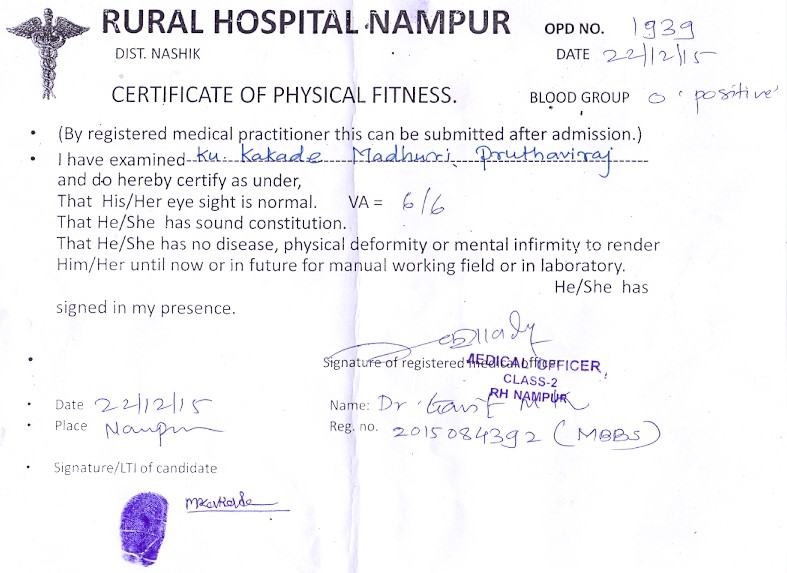 RURAL HOSPITAL NAMPUR
OPD NO. 1939
DIST. NASHIK
DATE 22/12/15
CERTIFICATE OF PHYSICAL FITNESS.
BLOOD GROUP O 'positive'
• (By registered medical practitioner this can be submitted after admission.)
• I have examined--Ku. Kakade Madhuri Pruthaviraj
and do hereby certify as under,
That His/Her eye sight is normal. VA = 6/6
That He/She has sound constitution.
That He/She has no disease, physical deformity or mental infirmity to render
Him/Her until now or in future for manual working field or in laboratory.
He/She has
signed in my presence.
• Signature of registered medical officer
MEDICAL OFFICER
CLASS-2
RH NAMPUR
• Date 22/12/15
Name: Dr
• Place Nampur
Reg. no. 2015084392 (MBBS)
• Signature/LTI of candidate